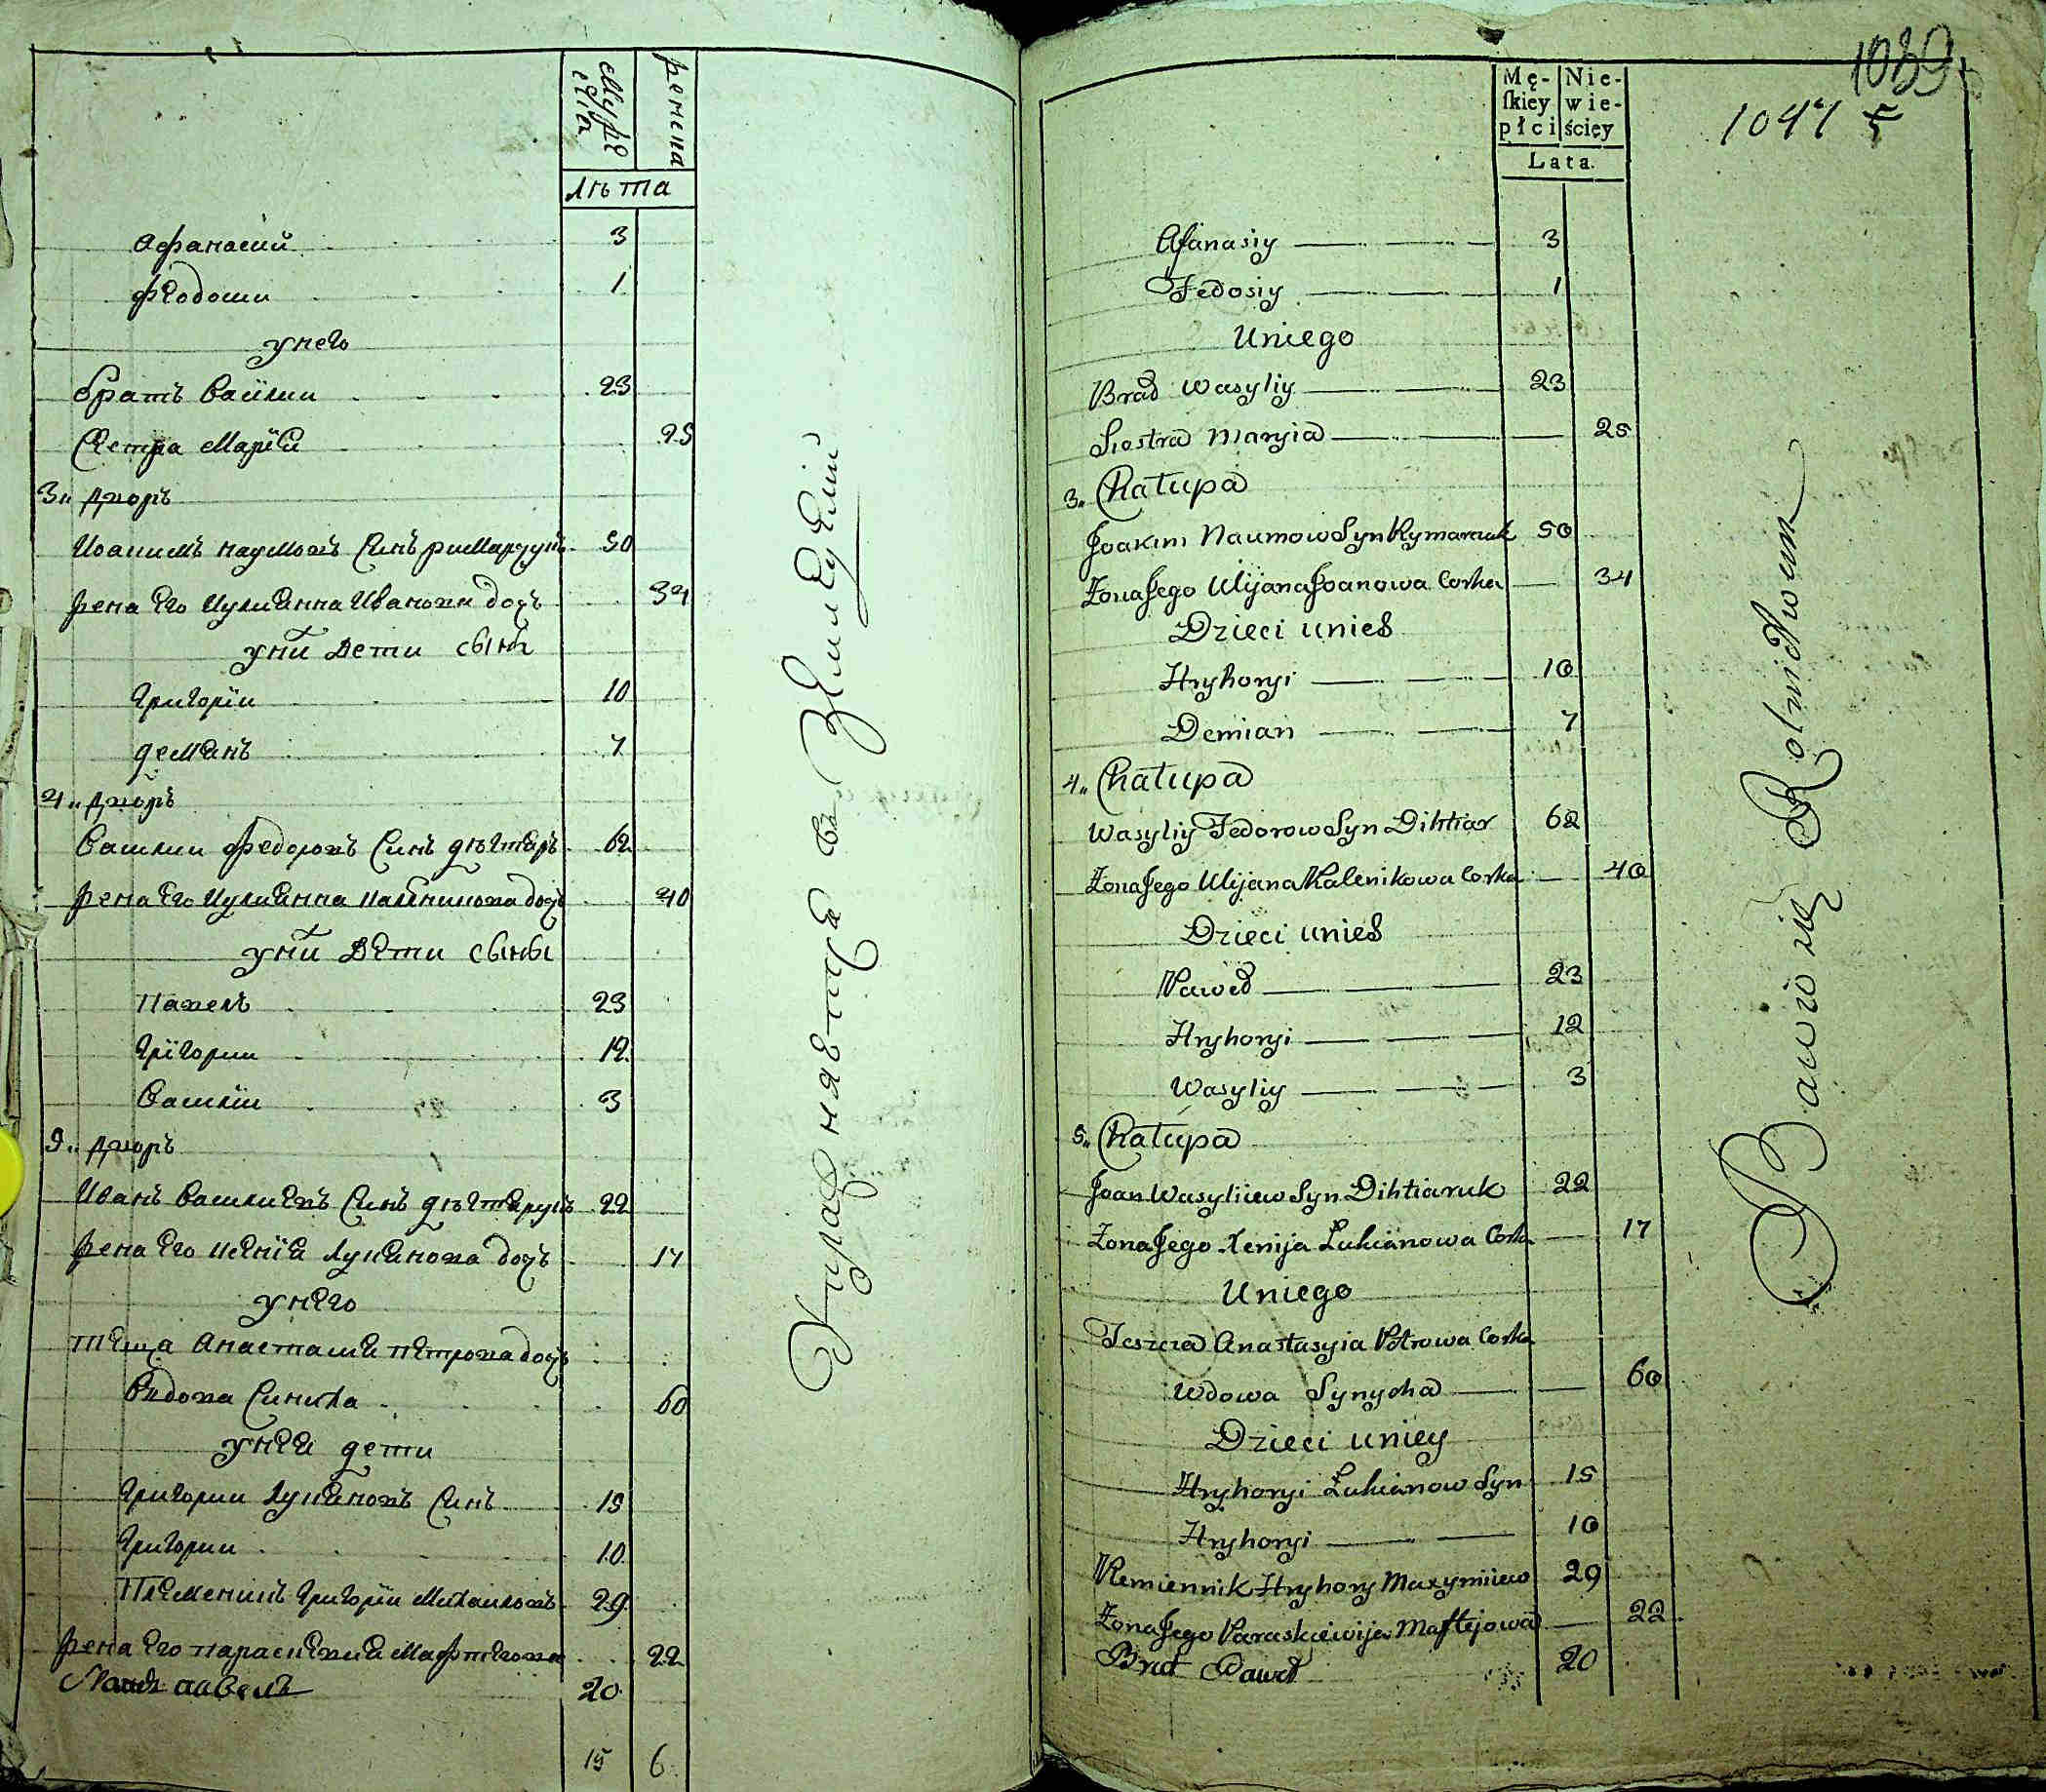 мужеска
женска
лѣта
Афанасий 3
Феодосии 1
у него
братъ Василии 23
Сестра Мария 25
3„ дворъ
Иоакимъ наумовъ Синъ римарчукъ 50
жена Его Иулианна Иванова дочъ 34
у них дети сыны
Григорїи 10
демянъ 7
4„ дворъ
Василии федоровъ Синъ дѣгтяръ 62
жена Его Иулианна Каленикова дочъ 40
у них дети сыны
Павелъ 23
Грїгории 12
Василїи 3
5„ дворъ
Иванъ Василиевъ Синъ дѣгтярукъ 22
жена Его Ксения Лукянова дочъ 17
у него
тѣща Анастасия петрова дочъ
Вдова Синиха 60
у нея дети
Григории Лукяновъ Синъ 15
Григории 10
Племеникъ Григорїи Михаиловъ 29
жена Его параскевия Мафтеова 22
павелъ 20
15 6
Упражняется в Земледелии
1039
1047 5
Mę- Nie-
ſkiey wie-
płci ścięy
Lata.
Afanasiy 3
Fedosiy 1
Uniego
Brad Wasyliy 23
Siostra Maryia 25
3„ Chałupa
Joakim Naumow Syn Rymarczuk 50
Zona Jego Ulijana Joanowa Corka 34
Dzieci unich
Hryhoryi 10
Demian 7
4„ Chałupa
Wasyliy Fedorow Syn Dihtiar 62
Zona Jego Ulijana Kalenikowa Corka 40
Dzieci unich
Paweł 23
Hryhoryi 12
Wasyliy 3
5„ Chałupa
Joan Wasyliiew Syn Dihtiaruk 22
Zona Jego Xenija Lukianowa Corka 17
Uniego
Teszcza Anastasyia Petrowa Corka
Wdowa Synycha 60
Dzieci uniey
Hryhoryi Łukianow Syn 15
Hryhoryi 10
Plemiennik Hryhory Maxymiiew 29
Zona Jego Paraskiewija Maftejowa 22
Brat Paweł 20
Bawi się Rolnictwem